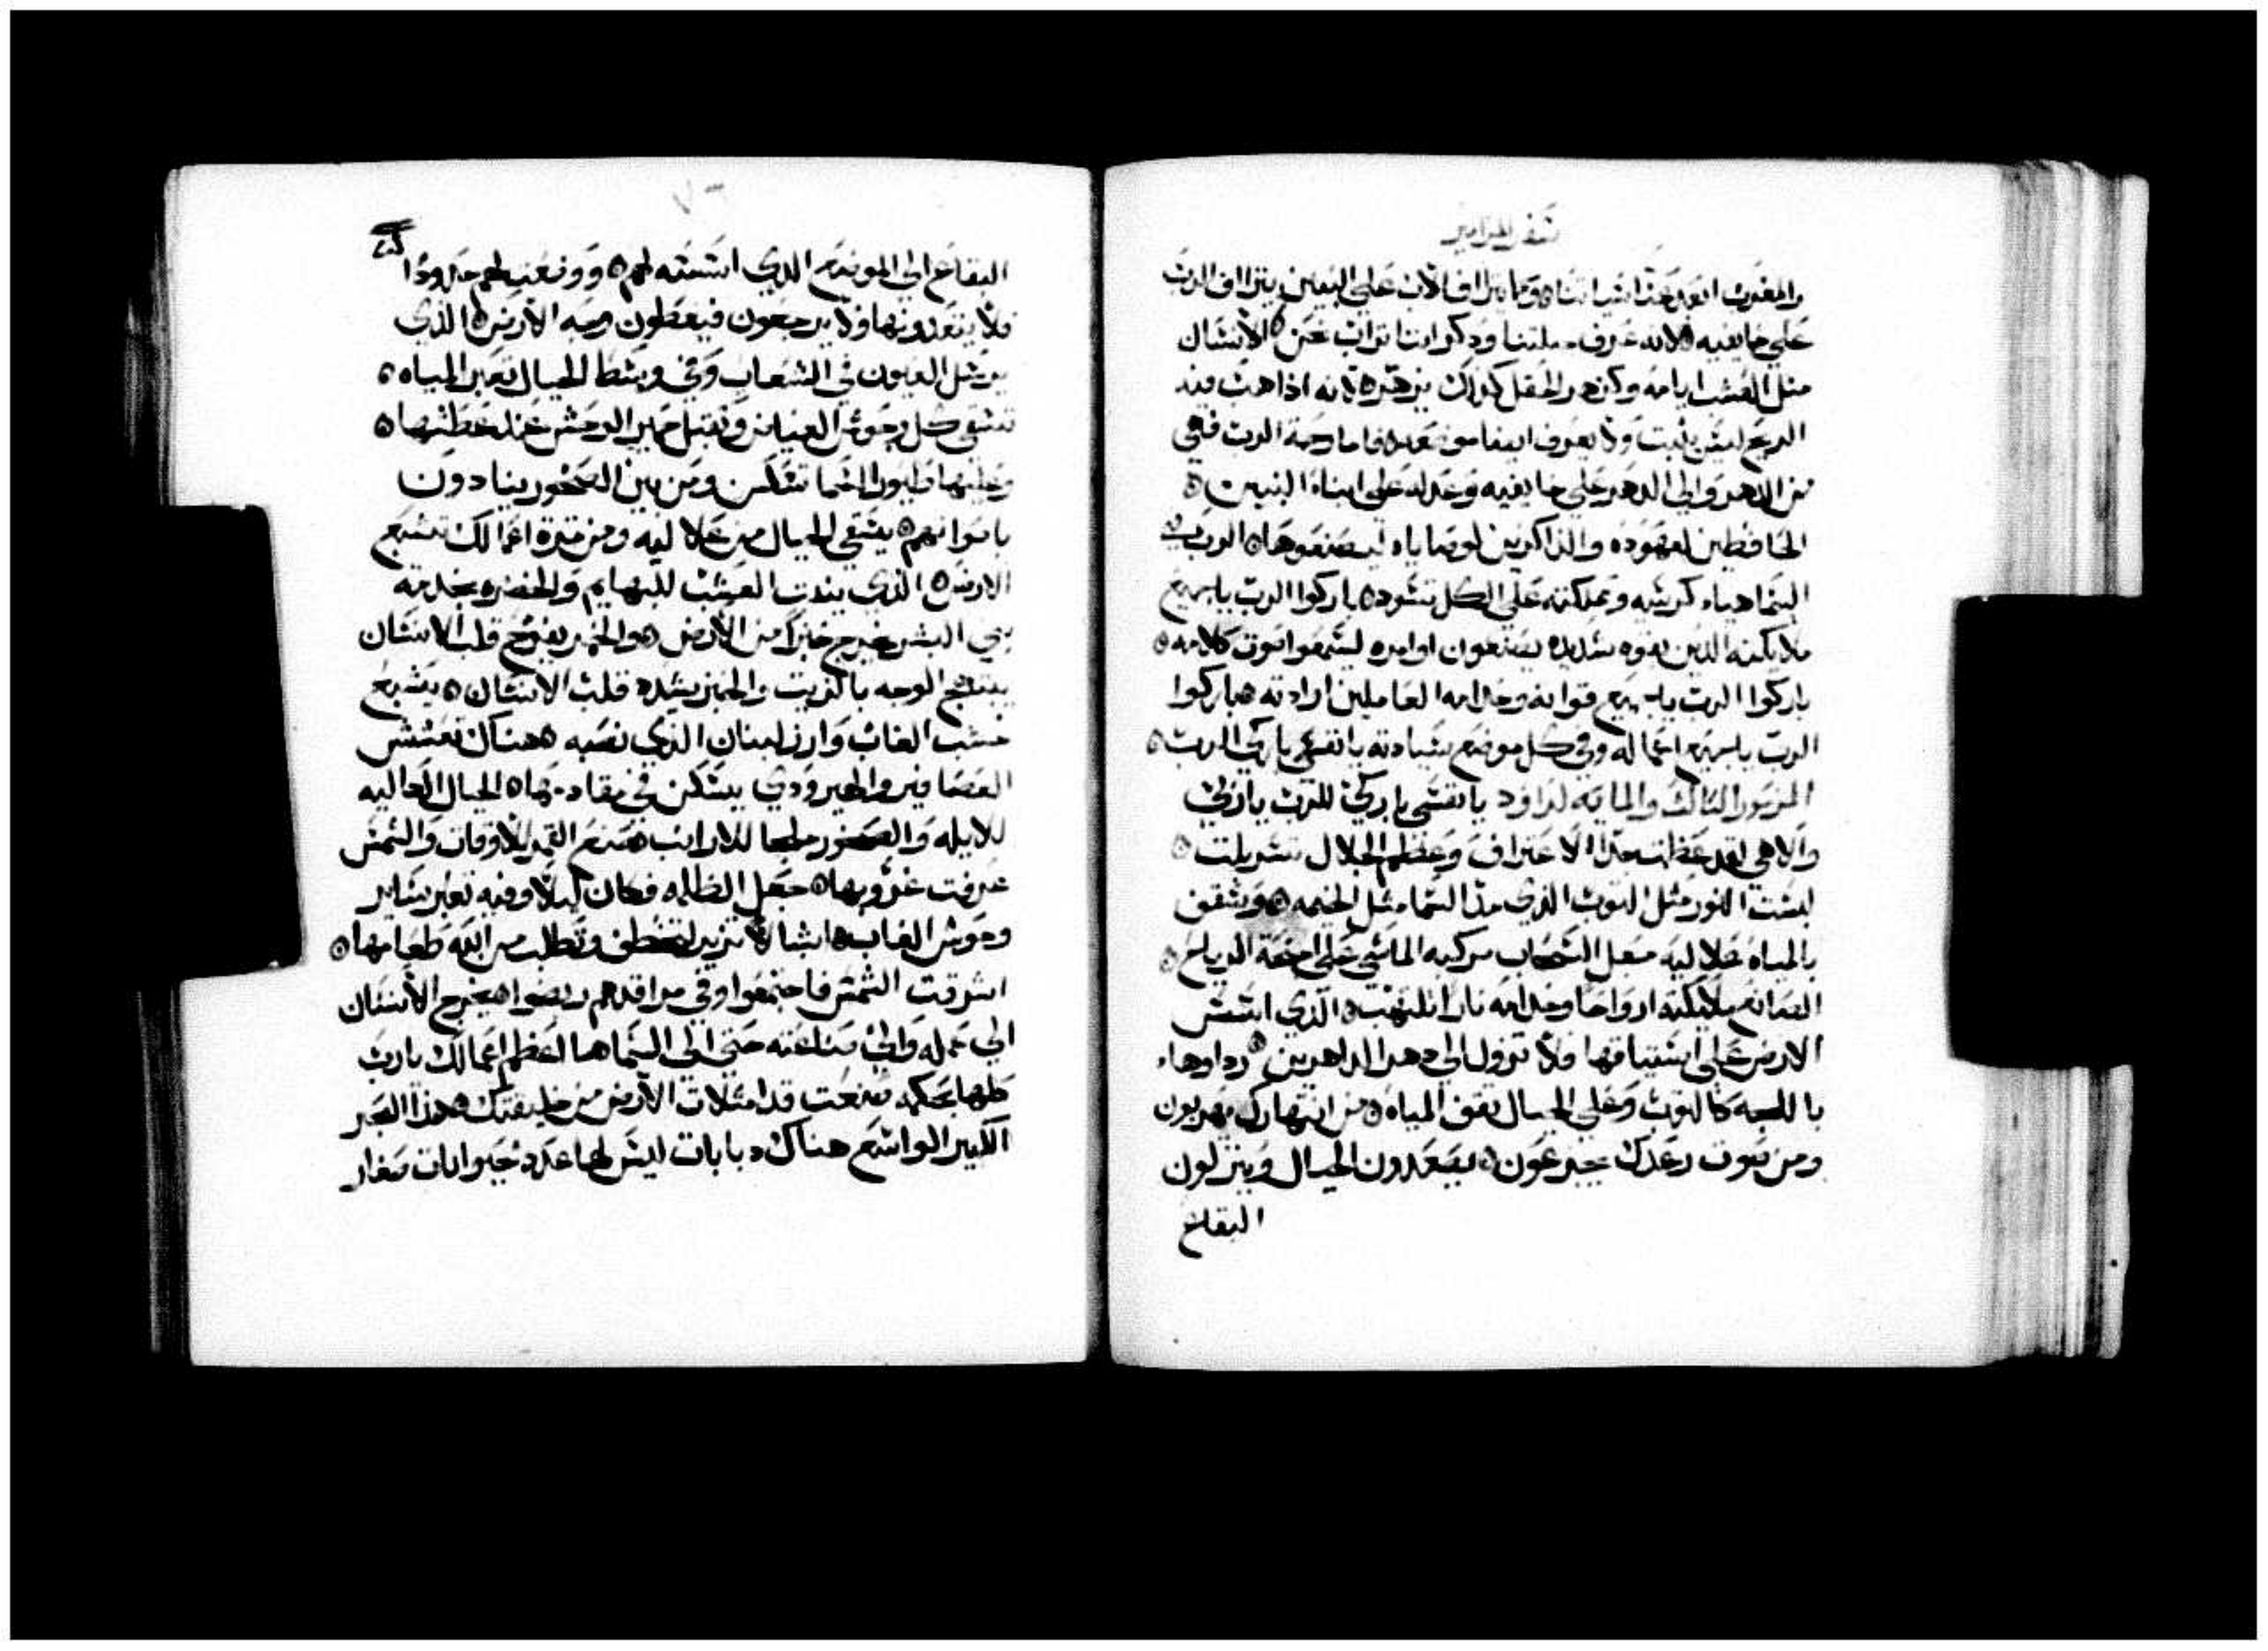 سفر المزامير
والمغرب ابعد عنا سياتنا وكما يتراف الاب على البنين يتراف الرب
على خايفيه لانه عرف جبلتنا وذكر اننا تراب نحن الانسان
مثل العشب ايامه وكزهر الحقل كذلك يزهر لانه اذا هبت فيه
الريح ليس يثبت ولا يعرف ايضا موضعه فاما رحمة الرب فهي
من الدهر والى الدهر على خايفيه وعدله على ابناء البنين
الحافظين لعهوده والذاكرين لوصاياه ليصنعوها الرب في
السما هياء كرسيه ومملكته على الكل تسود باركوا الرب يا جميع
ملايكته الذين بقوه شديده يصنعون اوامره ليسمعوا صوت كلامه
باركوا الرب يا جميع قواته وخدامه العاملين ارادته باركوا
الرب يا جميع اعماله وفي كل موضع سيادته يا نفسي باركي الرب
المزمور الثالث والمايه لداوود يا نفسي باركي للرب يا ربي
والاهي لقد عظمت جدا الاعتراف وعظم الجلال تسربلت
لبست النور مثل الثوب الذي مد السما مثل الخيمه وسقف
بالمياه علاليه جعل السحاب مركبه الماشي على اجنحة الرياح
الصانع ملايكته ارواحا وخدامه نارا تلتهب الذي اسس
الارض على استيثاقها فلا تزول الى دهر الداهرين رداوها
باللجه كالثوب وعلى الجبال تقف المياه من انتهارك يهربون
ومن صوت رعدك يجزعون يصعدون الجبال وينزلون
البقاع
البقاع الى الموضع الذي اسسته لهم ووضعت لهم حدودا
فلا يتعدونها ولا يرجعون فيغطون وجه الارض الذي
يرسل العيون في الشعاب وفي وسط الجبال تعبر المياه
تسقي كل وحوش الغياض وتقبل حمير الوحش عند عطشها
وعليها طيور السما تسكن ومن بين الصخور ينادون
باصواتهم يسقي الجبال من علاليه ومن ثمرة اعمالك تشبع
الارض الذي ينبت العشب للبهايم والخضره بخدمه
بني البشر ليخرج خبزا من الارض والخمر يفرح قلب الانسان
يبتهج الوجه بالزيت والخبز يشدد قلب الانسان يشبع
خشب الغاب وارز لبنان الذي نصبه هناك تعشش
العصافير والهيرودي يسكن في مقادمها الجبال العاليه
للايله والصخور ملجا للارانب صنع القمر للاوقات والشمس
عرفت غروبها جعل الظلمه فكان ليلا وفيه تعبر ساير
وحوش الغاب اشبالا تزير لتخطف وتطلب من الله طعامها
اشرقت الشمس فاجتمعوا وفي مراقدهم ربضوا يخرج الانسان
الى عمله والى صناعته حتى الى المسا ما اعظم اعمالك يا رب
كلها بحكمه صنعت قد امتلات الارض من خليقتك هذا البحر
الكبير الواسع هناك دبابات ليس لها عدد حيوانات صغار